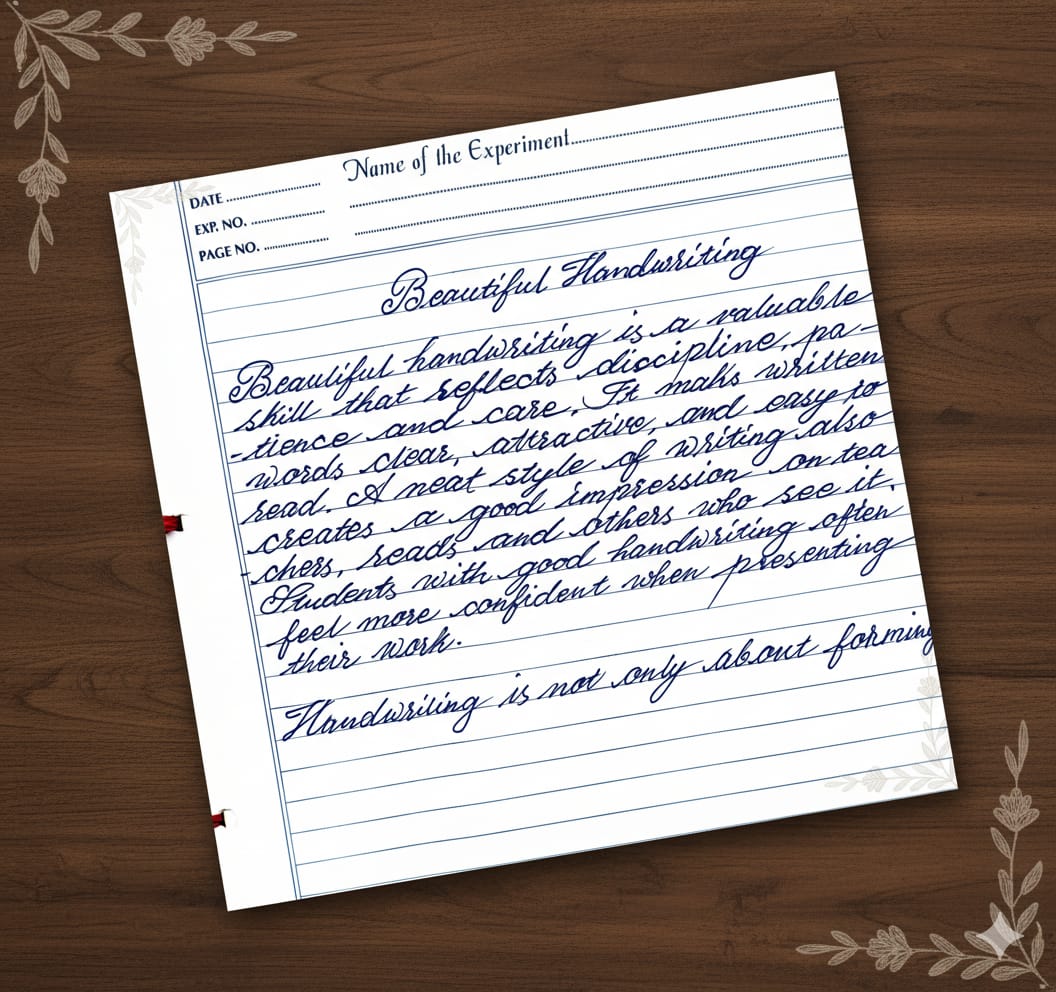 Name of the Experiment..................
DATE ..................
EXP. NO. ..................
PAGE NO. ..................
Beautiful Handwriting
Beautiful handwriting is a valuable
skill that reflects discipline, pa-
-tience and care. It makes written
words clear, attractive, and easy to
read. A neat style of writing also
creates a good impression on tea
-chers, reads and others who see it.
Students with good handwriting often
feel more confident when presenting
their work.
Handwriting is not only about forming